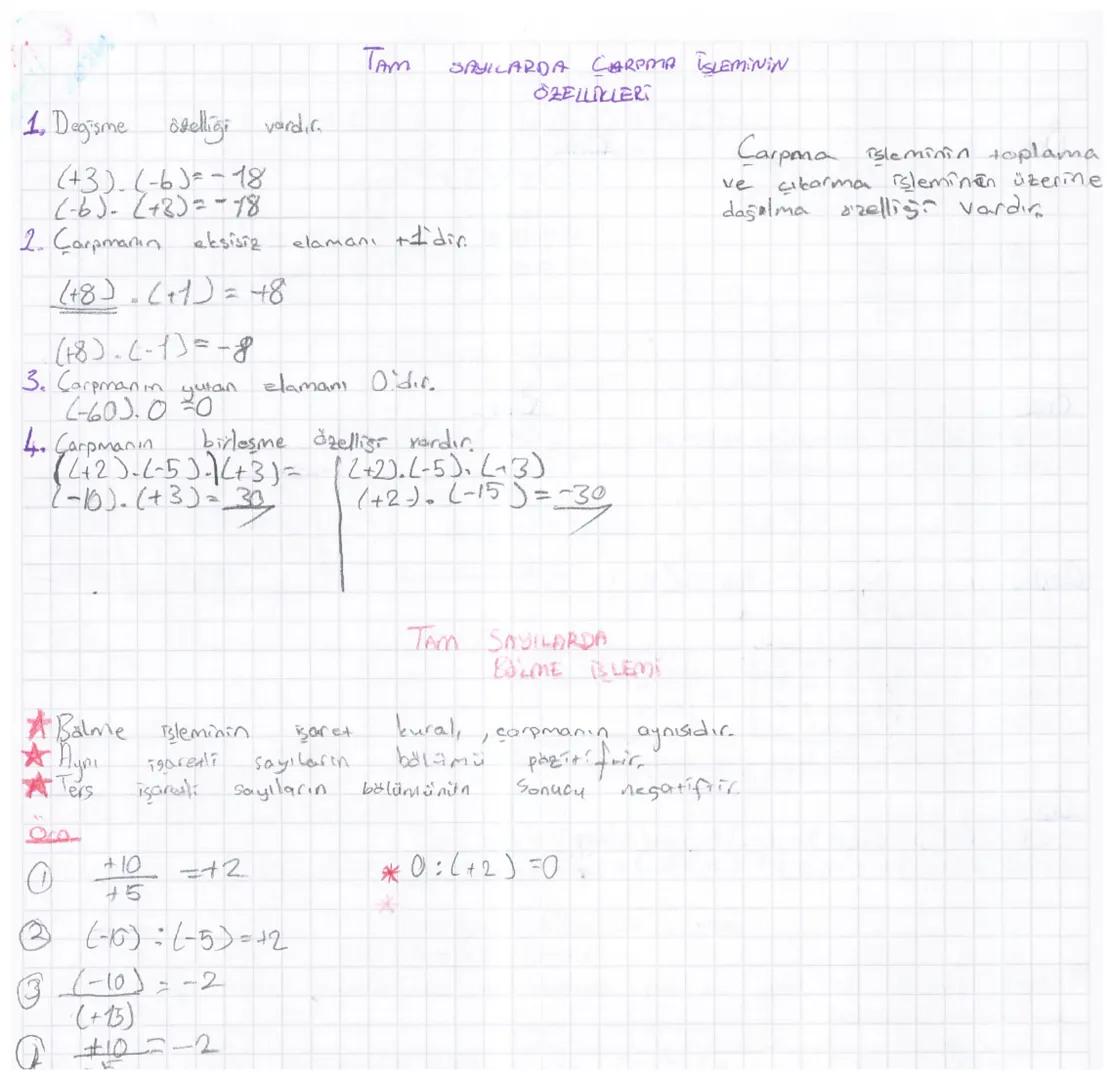 TAM SAYILARDA ÇARPMA İŞLEMİNİN
ÖZELLİKLERİ
1. Degişme özelliği vardır.
(+3).(-6)=-18
(-6).(+3)=-18
Çarpma işleminin toplama
ve çıkarma işleminin üzerine
dağılma özelliği vardır.
2. Çarpmanın eksisiz elamanı +1'dir.
(+8).(+1)=+8
(+8).(-1)=-8
3. Çarpmanın yutan elamanı 0'dır.
(-60).0=0
4. Çarpmanın birleşme özelliği vardır.
((+2).(-5)).(+3)= (+2).(-5).(+3)
(-10).(+3)=30 (+2).(-15)=-30
TAM SAYILARDA
BÖLME İŞLEMİ
Bölme işleminin işaret kuralı, çarpmanın aynısıdır.
Aynı işaretli sayıların bölümü pozitiftir.
Ters işaretli sayıların bölümünün sonucu negatiftir.
Örn
1 +10/+5 =+2 * 0:(+2)=0
2 (-10):(-5)=+2
3 (-10)/(+5) = -2
+10 = -2